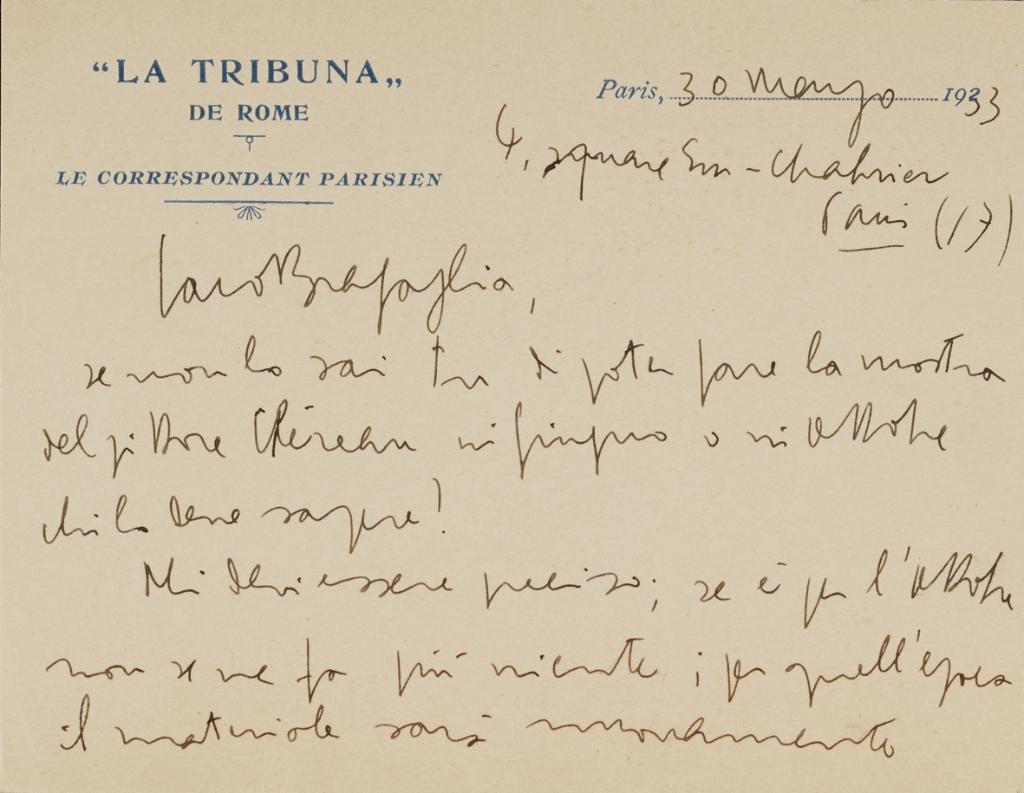 “LA TRIBUNA„
DE ROME
LE CORRESPONDANT PARISIEN
Paris, 30 Marzo 1933
4, square Em-Chabrier
Paris (17)
Caro Bragaglia,
se non lo sai tu di poter fare la mostra
del pittore Chéreau in giugno o in ottobre
chi lo deve sapere!
Mi devi essere preciso; se è per l'ottobre
non se ne fa più niente; per quell'epoca
il materiale sarà nuovamente